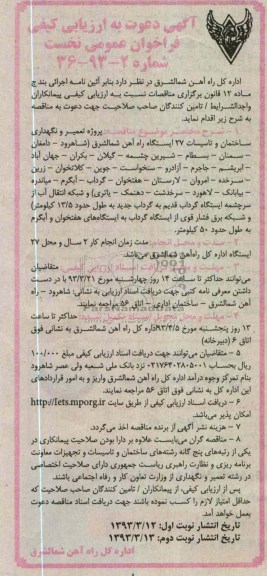 آگهی دعوت به ارزیابی کیفی
فراخوان عمومی نخست
شماره ۲-۹۳-۳۶
اداره کل راه آهن شمالشرق در نظر دارد بنابر آئین نامه اجرائی بند ج
ماده ۱۲ قانون برگزاری مناقصات نسبت به ارزیابی کیفی پیمانکاران
واجدالشرایط / تامین کنندگان صاحب صلاحیت جهت دعوت به مناقصه
به شرح زیر اقدام نماید.
۱- شرح مختصر موضوع مناقصه: پروژه تعمیر و نگهداری
ساختمان و تاسیسات ۲۷ ایستگاه راه آهن شمالشرق (شاهرود - دامغان
- سمنان - بسطام - شیرین چشمه - گیلان - بکران - جهان آباد
- ابریشم - جاجرم - آزادور - سنخواست - جوین - کلاتخوان - زرین
- سرخده - امروان - لارستان - هفتخوان - گرداب - آبگرم - میاندره
- بیابانک - لاهورد - سرخدشت - دهنمک - یاتری) و شبکه انتقال آب از
سرچشمه ایستگاه گرداب قدیم به گرداب جدید به طول حدود ۱۳/۵ کیلومتر)
و شبکه برق فشار قوی از ایستگاه گرداب به ایستگاه‌های هفتخوان و آبگرم
به طول حدود ۵۰ کیلومتر.
۲- مدت و محل انجام کار: مدت زمان انجام کار ۲ سال و محل ۲۷
ایستگاه اداره کل راه‌آهن شمالشرق می‌باشد.
۳- مهلت و محل دریافت اسناد ارزیابی کیفی: متقاضیان
می‌توانند حداکثر تا ساعت ۱۴ روز چهارشنبه مورخ ۹۳/۳/۲۱ با در دست
داشتن معرفی نامه کتبی جهت دریافت اسناد ارزیابی به نشانی: شاهرود - راه
آهن شمالشرق - ساختمان اداری - اتاق ۵۶ مراجعه نمایند.
حداکثر تا ساعت
۱۳ روز پنجشنبه مورخ ۹۳/۴/۵ اداره کل راه آهن شمالشرق به نشانی فوق
اتاق ۶ (دبیرخانه)
۵- متقاضیان می‌توانند جهت دریافت اسناد ارزیابی کیفی مبلغ ۱۰۰/۰۰۰
ریال بحساب ۰۲۱۷۶۴۰۲۸۰۵۰۰۱ نزد بانک ملی شعبه ولی عصر شاهرود
بنام تمرکز وجوه درآمد اداره کل راه آهن شمالشرق واریز و به امور قراردادهای
این اداره کل به نشانی فوق اتاق ۵۶ مراجعه نمایند.
۶- دریافت اسناد ارزیابی کیفی از طریق سایت http://Iets.mporg.ir
امکان پذیر می‌باشد.
۷- هزینه نشر آگهی از برنده مناقصه اخذ می‌گردد.
۸- مناقصه گران می‌بایست علاوه بر دارا بودن صلاحیت پیمانکاری در
یکی از رتبه‌های پنج گانه رشته‌های ساختمان و تاسیسات و تجهیزات معاونت
برنامه ریزی و نظارت راهبری ریاست جمهوری دارای صلاحیت اختصاصی
در رشته تعمیر و نگهداری از وزارت تعاون کار و رفاه اجتماعی باشند.
پس از ارزیابی کیفی، از پیمانکاران / تامین کنندگان صاحب صلاحیت که
حداقل امتیاز لازم را کسب نموده باشند جهت دریافت اسناد مناقصه دعوت
بعمل خواهد آمد.
تاریخ انتشار نوبت اول: ۱۳۹۳/۳/۱۲
تاریخ انتشار نوبت دوم: ۱۳۹۳/۳/۱۳
اداره کل راه آهن شمالشرق